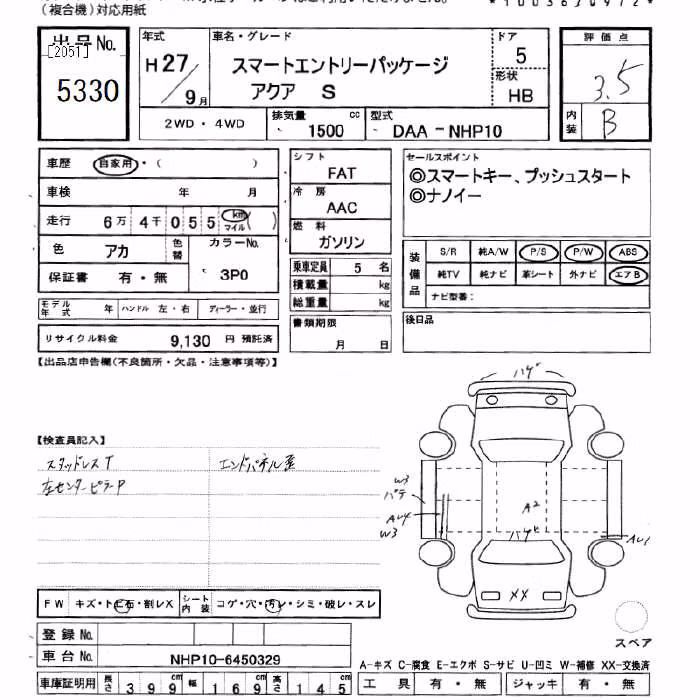 (複合機)対応用紙
*1003630972*
出品No.
[2051]
5330
年式
H27/9月
車名・グレード
スマートエントリーパッケージ
アクア S
ドア
5
形状
HB
評価点
3.5
内装
B
2WD・4WD
排気量
1500 cc
型式
DAA-NHP10
車歴 自家用・( )
車検 年 月
走行 6万4千055 km マイル ( )
色 アカ 色替 カラーNo. 3P0
保証書 有・無
モデル年式 年 ハンドル 左・右 ディーラー・並行
リサイクル料金 9,130 円 預託済
シフト
FAT
冷房
AAC
燃料
ガソリン
乗車定員 5 名
積載量 kg
総重量 kg
書類期限
月 日
セールスポイント
◎スマートキー、プッシュスタート
◎ナノイー
装備品
S/R 純A/W P/S P/W ABS
純TV 純ナビ 革シート 外ナビ エアB
ナビ型番:
後日品
【出品店申告欄(不良箇所・欠品・注意事項等)】
【検査員記入】
スタッドレスT
エンドパネル歪
左センターピラーP
ハゲ
W3
パテ
AU4
W3
A2
AU1
XX
FW キズ・トビ石・割レX シート内装 コゲ・穴・汚レ・シミ・破レ・スレ
登録No.
車台No. NHP10-6450329
車庫証明用 長さ 399 幅 169 高さ 145
スペア
A-キズ C-腐食 E-エクボ S-サビ U-凹ミ W-補修 XX-交換済
工具 有・無 ジャッキ 有・無